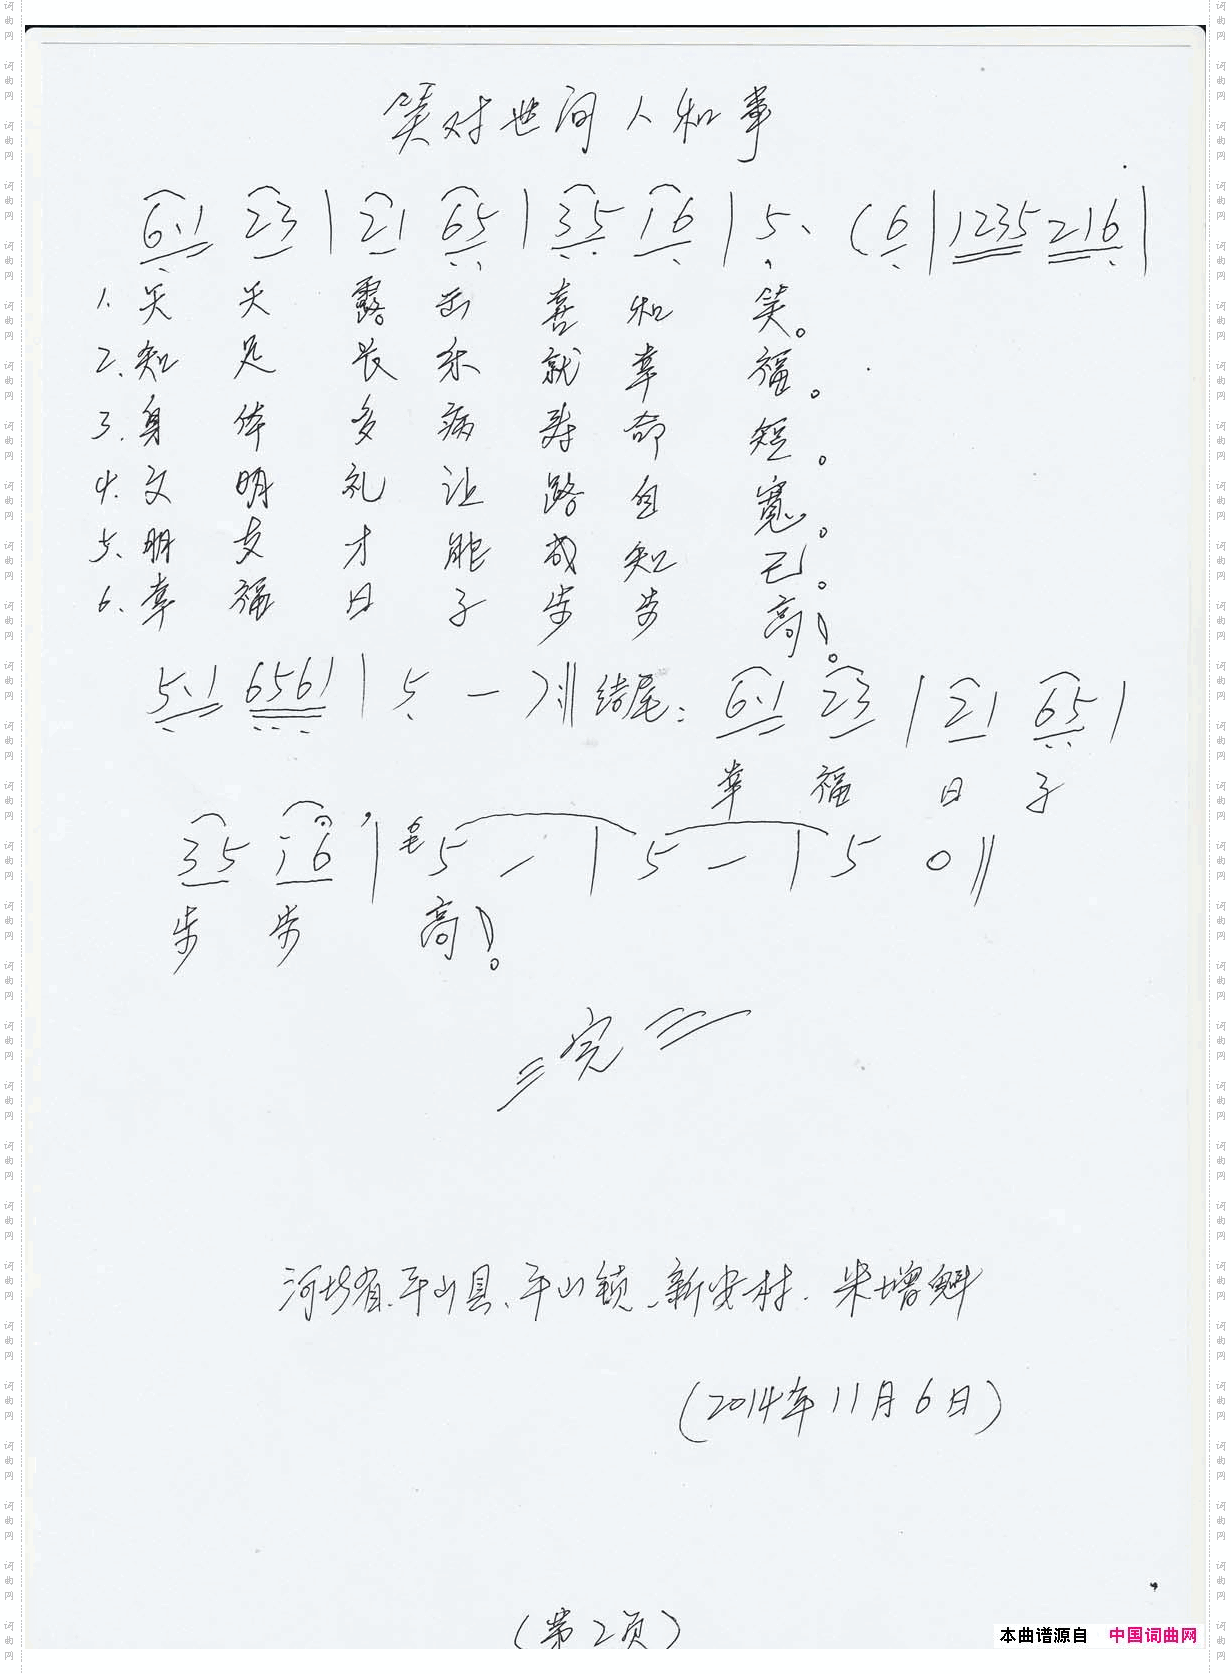 笑对世间人和事
6·1 23 | 21 65 | 35 16 | 5· (6 | 1235 216 |
1. 天 天 露。出 喜 和 笑。
2. 知 足 长 乐 就 幸 福。
3. 身 体 多 病 寿 命 短。
4. 文 明 礼 让 路 自 宽。
5. 朋 友 才 能 成 知 己。
6. 幸 福 日 子 步 步 高!。
5·1 6561 | 5 — )‖ 结尾: 6·1 23 | 21 65 |
幸 福 日 子
35 16 , | 5 — | 5 — | 5 0 ‖
步 步 高!。
完
河北省、平山县、平山镇、新安村. 米增魁
(2014年11月6日)
(第2页)
本曲谱源自 中国词曲网